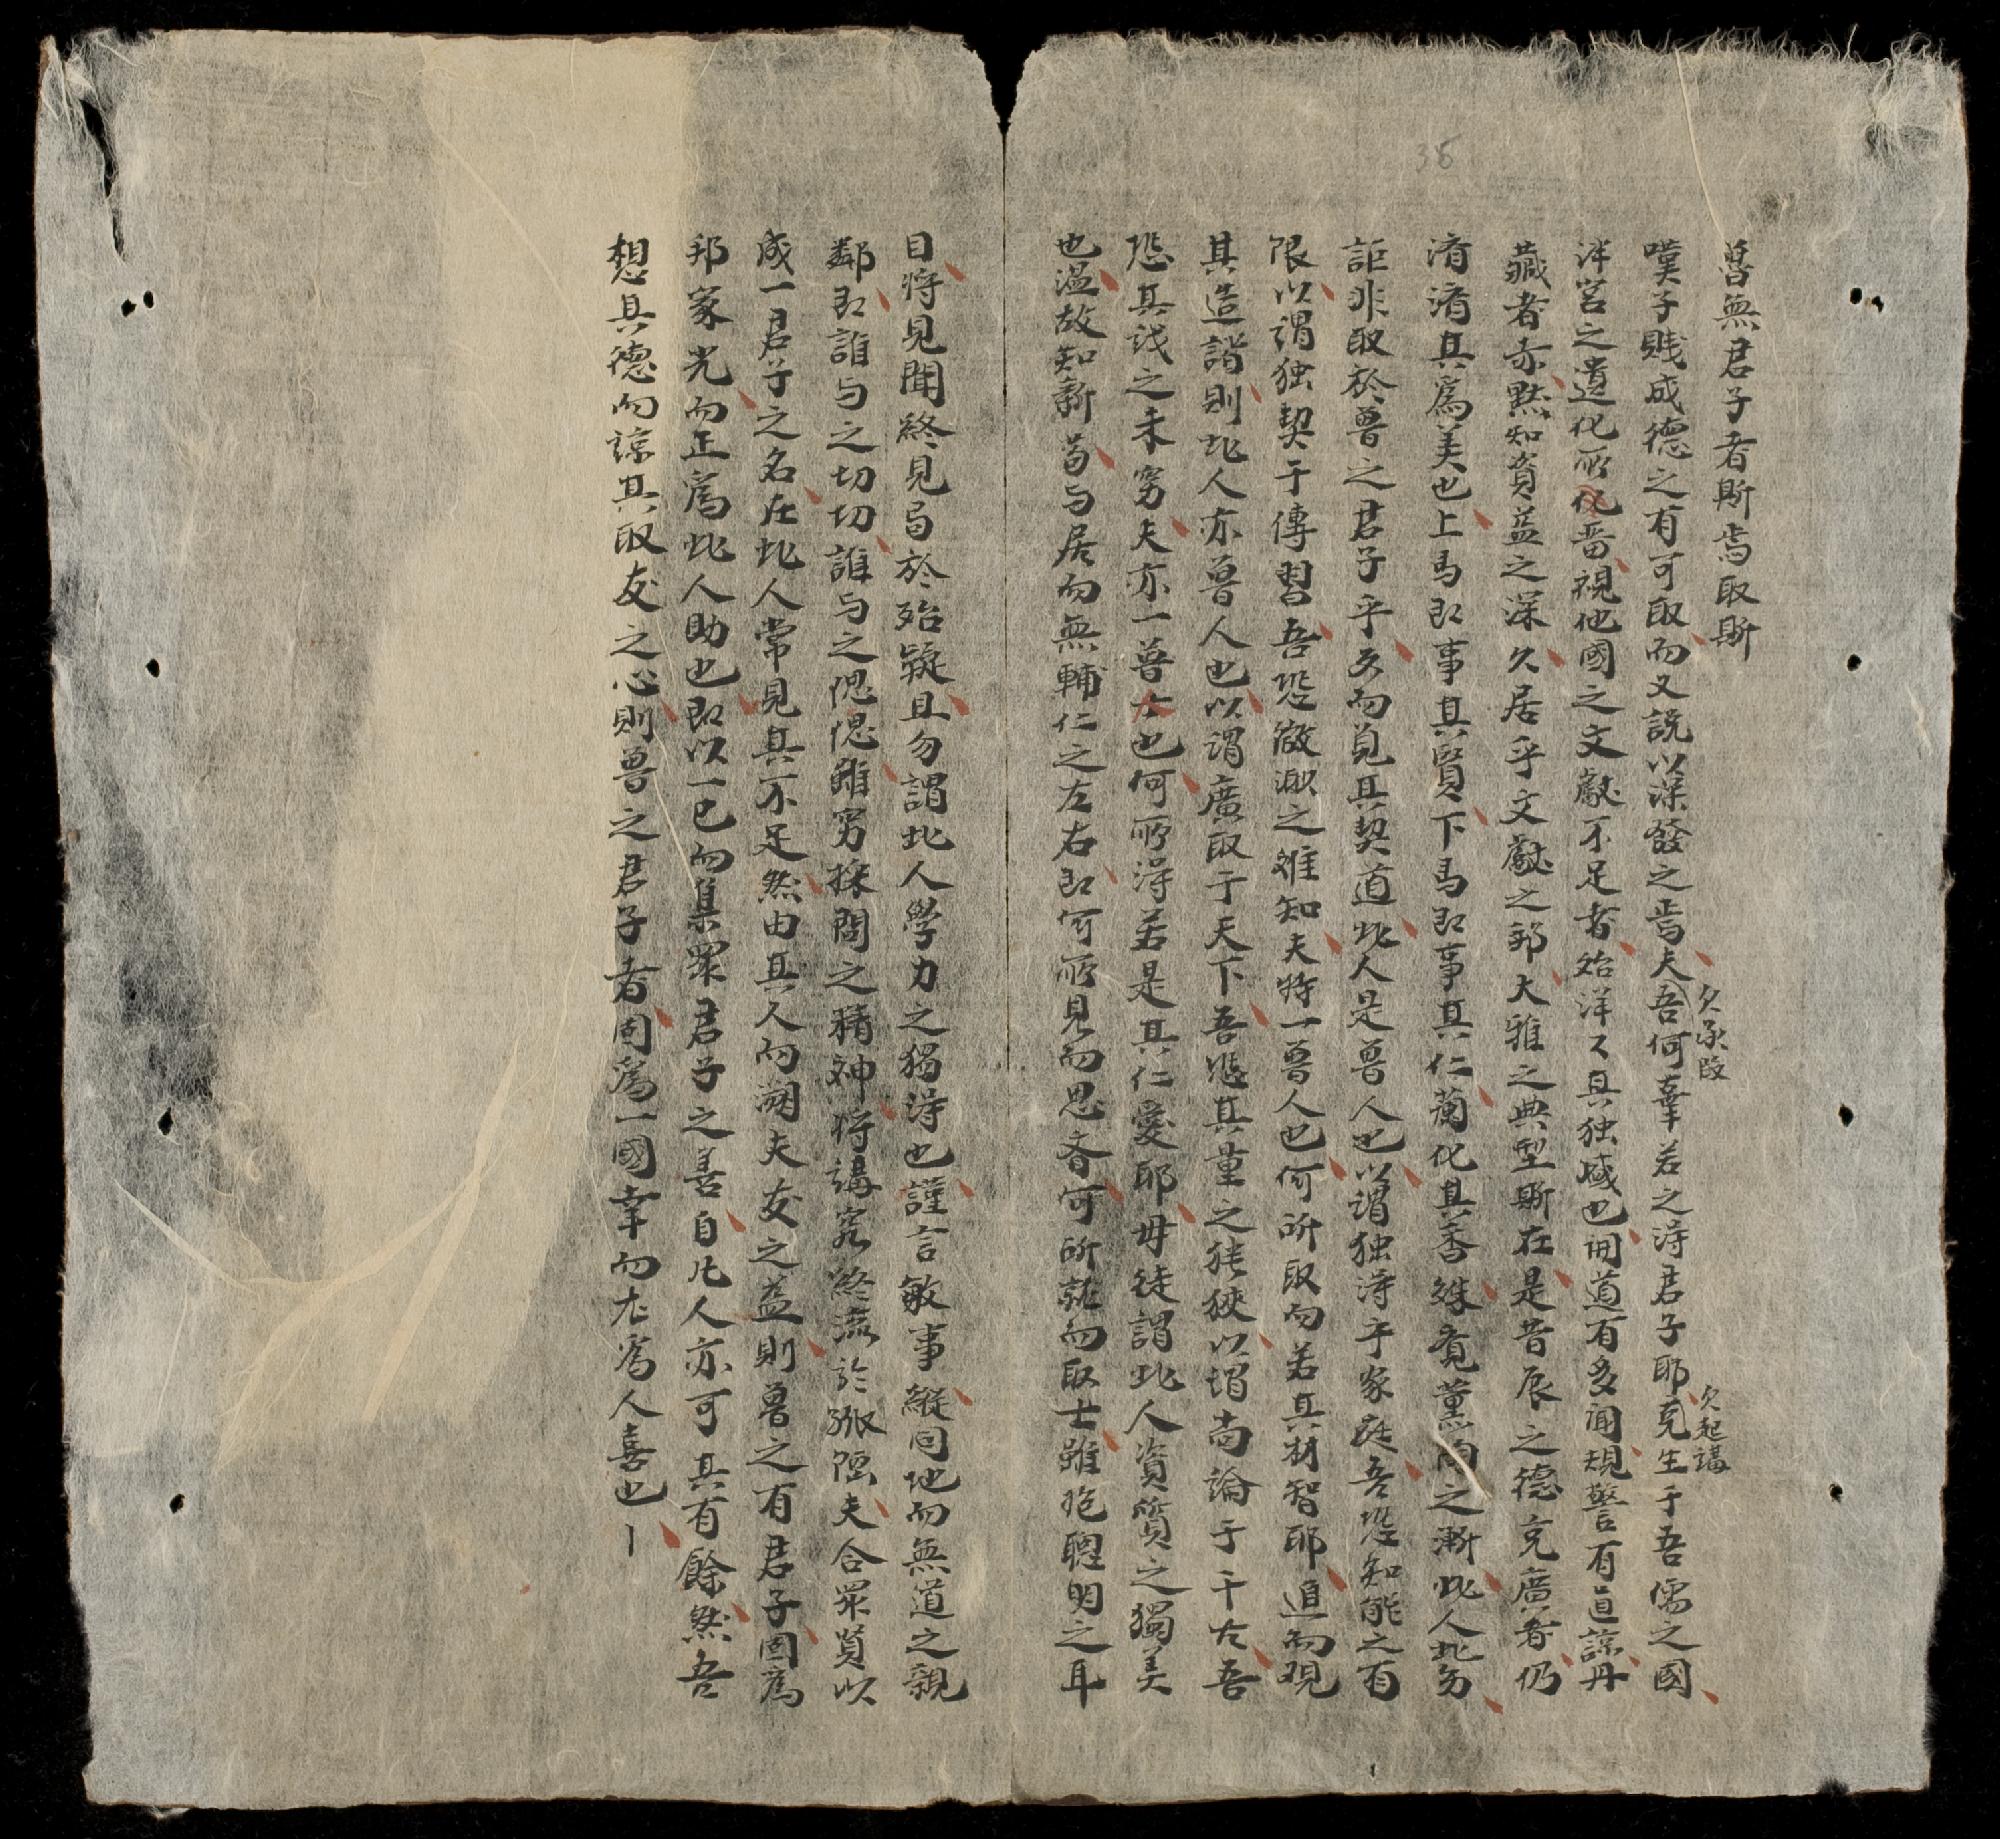 36
魯無君子者斯焉取斯
嘆子賤成德之有可取而又説以深發之焉夫吾何幸若之淂君子耶克生于吾儒之國
欠承段
欠起講
泮宮之遺化所化晋視他國之文獻不足者殆洋々其独盛也闻道有多聞規警有直諒丹
藏者赤黙知資益之深久居乎文獻之邦大雅之典型斯在是昔辰之德克廣者仍
濟濟其為美也上馬即事其賢下馬即事其仁蘭化其香殊覺薰陶之漸此人此勿
詎非取於魯之君子乎友而見其契道此人是魯人也以謂独淂乎家庭吾恐知能之有
限以謂独契于傳習吾恐微淵之难知夫特一魯人也何所取而若其材智耶追而观
其造詣則此人亦魯人也以谓廣取于天下吾恐其量之狹以谓尚論于千古吾
恐其識之未穷夫亦一魯士也何所淂若是其仁愛耶毋徒謂此人資質之獨美
也温故知新苟与居而無輔仁之左右即何所見而思齊何所就而取士雖抱聰明之耳
目將見聞終見局於殆疑且勿謂此人學力之獨淂也謹言敏事縱同地而無道之親
鄰即誰与之切切誰与之偲偲雖穷採問之精神將講究終流於孤陋夫合眾賢以
成一君子之名在此人常見其不足然由其人而溯夫友之益則魯之有君子固為
邦家光而正為此人助也即以一己而集眾君子之善自凡人亦可其有餘然吾
想其德而諒其取友之心則魯之君子者固為一國幸而尤为人喜也